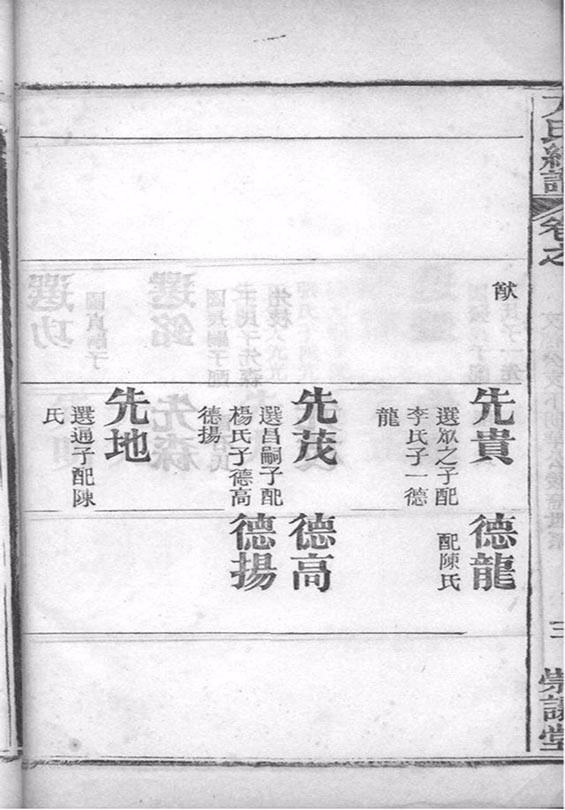 卷之
三
堂
猷
先貴
選眾之子配
李氏子一德
龍
先茂
選昌嗣子配
楊氏子德高
德揚
先地
選通子配陳
氏
德龍
配陳氏
德高
德揚